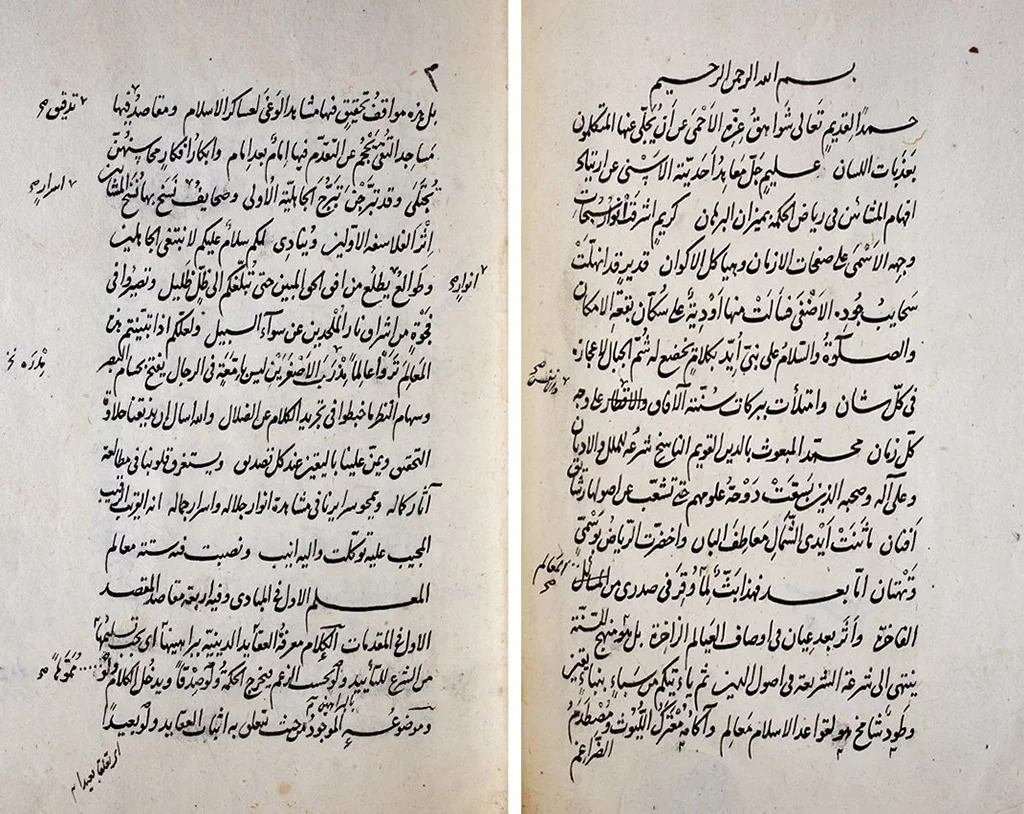 بسم الله الرحمن الرحيم
حمدا لقديم تعالى شواهق عزه الأحمى عن ان يجلى عنها المتكلمون
بعذبات اللسان عليم جل معاهد احديته الاسنى عن ارتياد
افهام المشائين في رياض الحكمة بميزان البرهان كريم اشرقت انوار سبحات
وجهه الاسمى على صفحات الازمان وهياكل الاكوان قدير قد انهلت
سحايب جوده الاضفى فسالت منها اودية على سكان بقعة الامكان
والصلوة والسلام على نبي أيد بكلام يخضع له شم الجبال لاعجازه
في كل شان وامتلأت ببركات سنته الآفاق والاقطار على وجه
كل زمان محمد المبعوث بالدين القويم الناسخ شرعه للملل والاديان
وعلى آله وصحبه الذين بسقت دوحة علومهم حتى تشعب عن اصولها
افنان ما ثنت أيدي الشمال معاطف البان واخضرت الرياض بوسمي
وتهتان امّا بعد فهذا بث لما وقر في صدري من المسائل
المعالم
الفاخرة وأثر بعد عيان في اوصاف العيالم الزاخرة بل هو منهج للسنة
ينتهي الى شرعة الشريعة في اصول الدين ثم يأتيكم من سبإ بنباء يقين
وطود شامخ هو لقواعد الاسلام معالم وآكامه معترك الليوث ومصطدم
الضراغم
٢
بل هذه مواقف تحقيق فيها مشاهد الوغى لعساكر الاسلام ومقاصد فيها
تدقيق صح
مساجد التقى للتقدم فيها امام بعد امام وابكار افكار محاسنهن
تجتلى وقد تبرجن تبرج الجاهلية الأولى وصحايف نسخ بها نسخ المشائين
اسرار صح
اثر الفلاسفة الاولين وينادى لكم سلام عليكم لا نبتغي الجاهلين
وطوالع يطلع من افق الحق المبين حتى تبلغكم الى ظل ظليل وتصيروا في
انوار صح
فجوة من اشراق نار الملحدين عن سواء السبيل ولعلكم اذا تبينتم من
المعالم تروا عالما بذرب الاصغرين ليس بامعة في الرجال يفتح بحسام البصر
وسهام النظر ما خبطوا في تجريد الكلام عن الضلال والله اسأل ان يذيقنا حلاوة
التحقيق ويمن علينا باليقين عند كل تصديق ويستغرق قلوبنا في مطالعة
آثار كماله ويمحو سرايرنا في مشاهدة انوار جلاله واسرار جماله انه القريب
المجيب عليه توكلت واليه انيب ونصبت فيه ستة معالم
المعلم الاول في المبادى وفيه اربعة مقاصد المقصد
الاول في المقدمات الكلام معرفة العقايد الدينية ببراهينها اى يجب تسليمها
من الشرع للتأييد ولو بحسب الزعم فيخرج الحكمة ولو صدقا ويدخل الكلام ولو
وموضوعه الموجود من حيث تتعلق به اثبات العقايد ولو بعيدا
اى تعلقا بعيدا